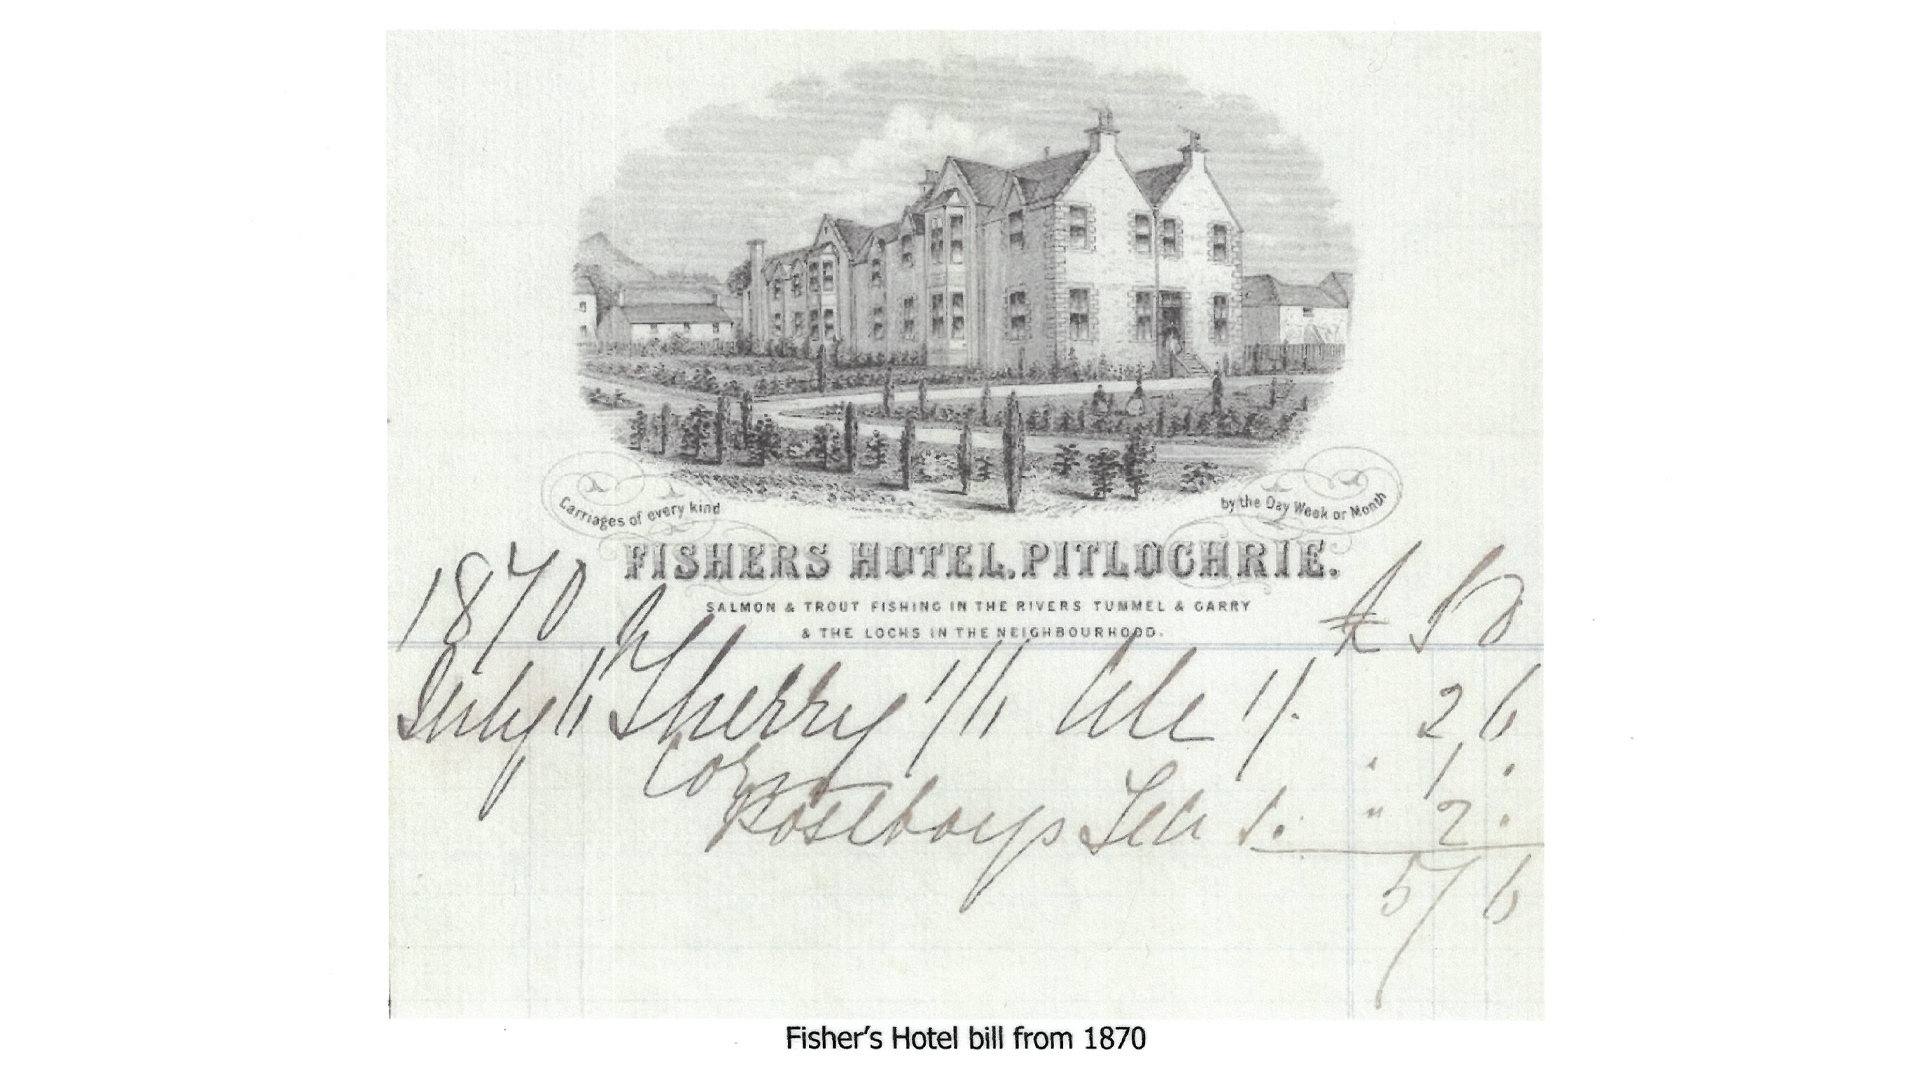 Carriages of every kind
by the Day Week or Month
FISHERS HOTEL, PITLOCHRIE.
SALMON & TROUT FISHING IN THE RIVERS TUMMEL & GARRY
& THE LOCHS IN THE NEIGHBOURHOOD.
1870 £ S D
July 11 Sherry Ale 1/. 2 6
" 1 "
Tea " 2 "
5/6
Fisher's Hotel bill from 1870